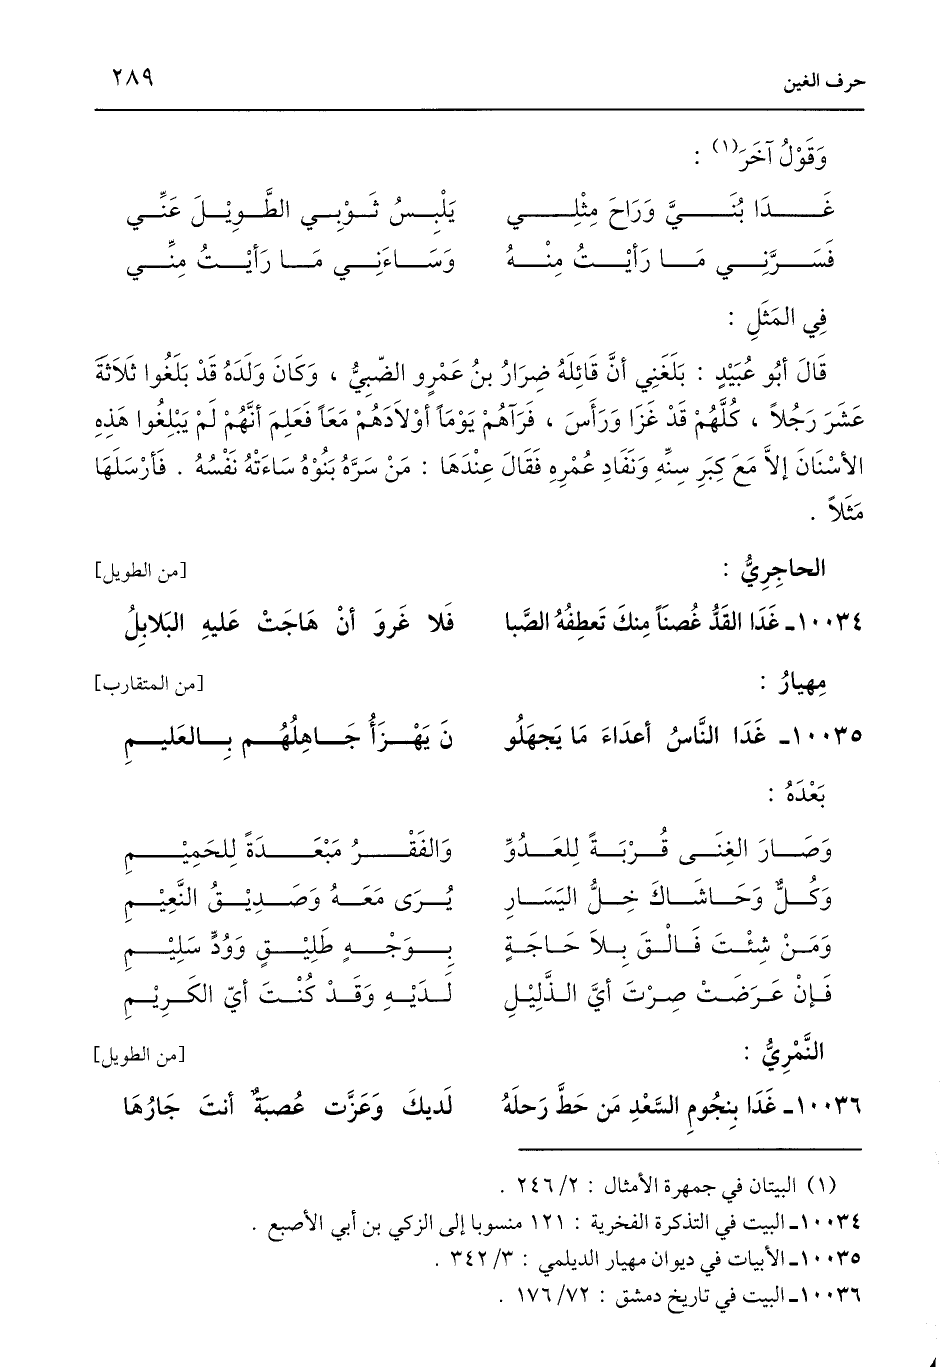 حرف الغين ٢٨٩
وَقَوْلُ آخَرَ(١) :
غَـدَا بُنَـيَّ وَرَاحَ مِثْلِـي يَلْبِـسُ ثَـوْبِـي الطَّـوِيْـلَ عَنِّـي
فَسَـرَّنِـي مَـا رَأَيْـتُ مِنْـهُ وَسَـاءَنِـي مَـا رَأَيْـتُ مِنِّـي
فِي المَثَلِ :
قَالَ أَبُو عُبَيْدٍ : بَلَغَنِي أَنَّ قَائِلَهُ ضِرَارُ بنُ عَمْرٍو الضّبِيُّ ، وَكَانَ وَلَدُهُ قَدْ بَلَغُوا ثَلَاثَةَ
عَشَرَ رَجُلاً ، كُلَّهُمْ قَدْ غَزَا وَرَأَسَ ، فَرَآهُمْ يَوْمَاً أَوْلاَدَهُمْ مَعَاً فَعَلِمَ أَنَّهُمْ لَمْ يَبْلِغُوا هَذِهِ
الأَسْنَانَ إلاَّ مَعَ كِبَرِ سِنِّهِ وَنَفَادِ عُمْرِهِ فَقَالَ عِنْدَهَا : مَنْ سَرَّهُ بَنُوْهُ سَاءَتْهُ نَفْسُهُ . فَأَرْسَلَهَا
مَثَلاً .
الحاجِرِيُّ : [من الطويل]
١٠٠٣٤ـ غَدَا القَدُّ غُصنَاً مِنكَ تَعطِفُهُ الصَّبا فَلا غَروَ أنْ هَاجَتْ عَليهِ البَلابِلُ
مِهيارُ : [من المتقارب]
١٠٠٣٥ـ غَدَا النَّاسُ أعدَاءَ مَا يَجهَلُو نَ يَهْـزَأُ جَـاهِلُهُـم بِـالعَليـمِ
بَعْدَهُ :
وَصَـارَ الغِنَـى قُـرْبَـةً لِلعَـدُوِّ وَالفَقْـرُ مَبْعَـدَةً لِلحَمِيْـمِ
وَكُـلٌّ وَحَـاشَـاكَ خِـلُّ اليَسَـارِ يُـرَى مَعَـهُ وَصَـدِيْـقُ النَّعِيْـمِ
وَمَـنْ شِئْـتَ فَـالْـقَ بِـلاَ حَـاجَـةٍ بِـوَجْـهٍ طَلِيْـقٍ وَوُدٍّ سَلِيْـمِ
فَـإنْ عَـرَضَـتْ صِـرْتَ أَيَّ الـذَّلِيْـلِ لَـدَيْـهِ وَقَـدْ كُنْـتَ أَيّ الكَـرِيْـمِ
النَّمْرِيُّ : [من الطويل]
١٠٠٣٦ـ غَدَا بِنجُومِ السَّعْدِ مَن حَطَّ رَحلَهُ لَديكَ وَعَزَّت عُصبَةٌ أنتَ جَارُهَا
(١) البيتان في جمهرة الأمثال : ٢/ ٢٤٦ .
١٠٠٣٤ـ البيت في التذكرة الفخرية : ١٢١ منسوبا إلى الزكي بن أبي الأصبع .
١٠٠٣٥ـ الأبيات في ديوان مهيار الديلمي : ٣/ ٣٤٢ .
١٠٠٣٦ـ البيت في تاريخ دمشق : ٧٢/ ١٧٦ .